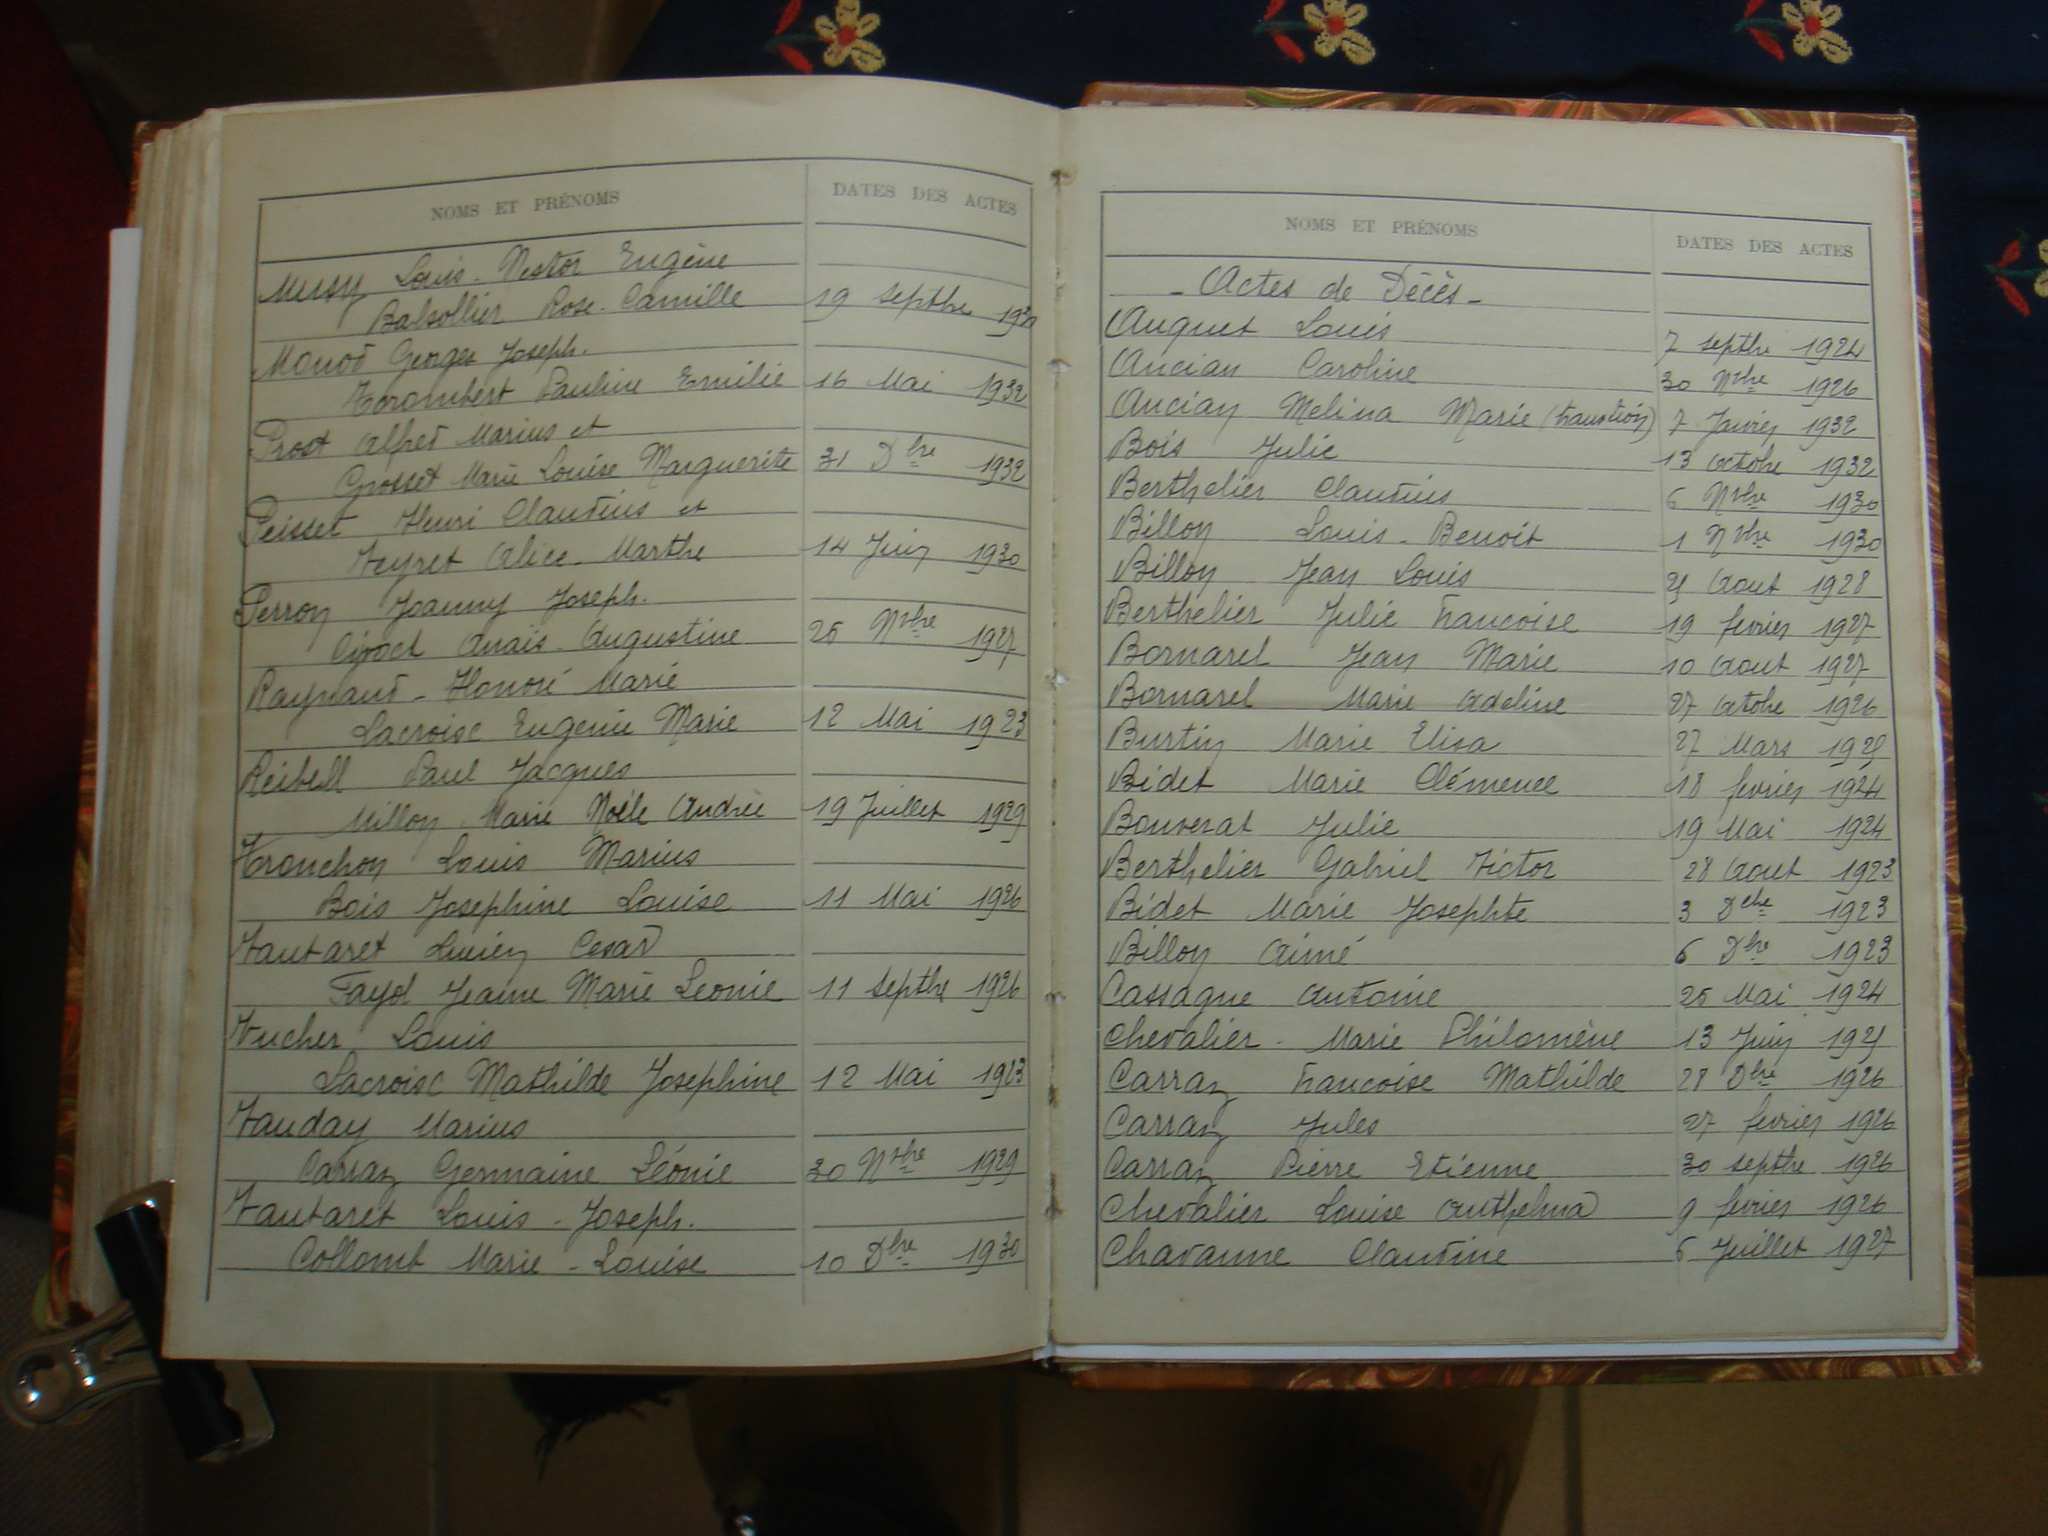 NOMS ET PRÉNOMS DATES DES ACTES
Musy Louis-Nestor Eugène
Balsollier Rose-Camille 19 septbre
Monod Georges Joseph.
Trombert Pauline Emilie 16 Mai 1932
Prost Alfred Marius et
Grosset Marie Louise Marguerite 31 Dbre 1932
Peisset Henri Claudius et
Veyret Alice-Marthe 14 Juin 1930
Perron Joanny Joseph.
Anaïs-Augustine 25 Nvbre 1927
Raynaud-Honoré Marie
Lacroise Eugenie Marie 12 Mai 1923
Reibell Paul Jacques
Millon Marie Noële Andrée 19 Juillet 1929
Tronchon Louis Marius
Bois Josephine Louise 11 Mai 1926
Vautaret Lucien Cesar
Fayol Jeanne Marie Leonie 11 Septbre 1926
Vucher Louis
Lacroise Mathilde Josephine 12 Mai 1923
Vauday Marius
Carraz Germaine Léonie 30 Nvbre 1929
Vautaret Louis-Joseph.
Collomb Marie-Louise 10 Dbre 1930
NOMS ET PRÉNOMS DATES DES ACTES
- Actes de Décès -
Auguet Louis 7 septbre 1924
Ancian Caroline 30 Nvbre 1926
Ancian Melina Marie 7 Janvier 1932
Bois Julie 13 octobre 1932
Berthelier Claudius 6 Nvbre 1930
Billon Louis-Benoit 1 Nvbre 1930
Billon Jean Louis 21 Aout 1928
Berthelier Julie Francoise 19 fevrier 1927
Bornarel Jean Marie 10 Aout 1927
Bornarel Marie Adeline 27 octobre 1926
Burtin Marie Elisa 27 Mars
Bidet Marie Clémence 18 fevrier 1924
Bonverat Julie 19 Mai 1924
Berthelier Gabriel Victor 28 Aout 1923
Bidet Marie Josephte 3 Dcbre 1923
Billon Aimé 6 Dbre 1923
Cassagne Antoine 25 Mai 1924
Chevalier-Marie Philomène 13 Juin
Carraz Francoise Mathilde 28 Dbre 1926
Carraz Jules 27 fevrier 1926
Carraz Pierre Etienne 30 septbre 1926
Chevalier Louise Anthelma 9 fevrier 1926
Chavanne Claudine 6 Juillet 1927